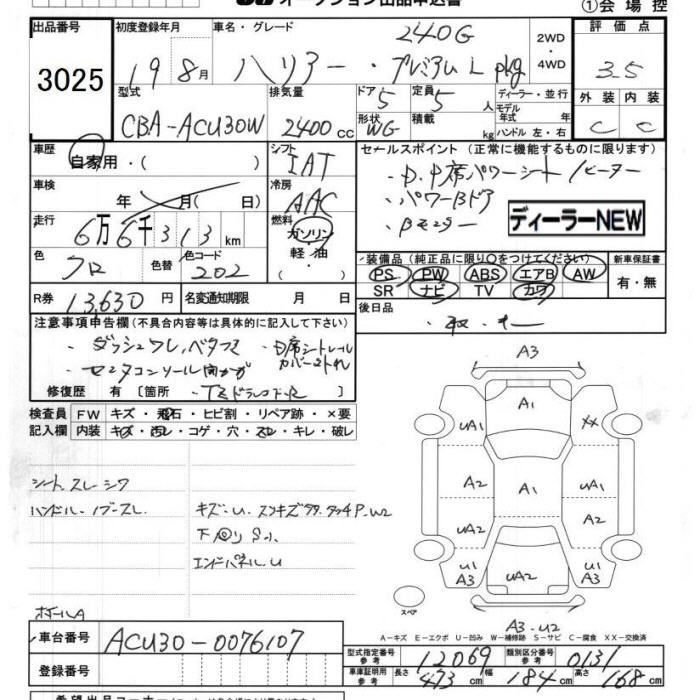 オークション出品申込書 ①会場控
出品番号 初度登録年月 車名・グレード 評価点
3025 19 8月 ハリアー・ 240G プレミアム L pkg 2WD ・ 4WD 3.5
型式 排気量 ドア 5 定員 5 人 ディーラー・並行 外装 内装
CBA-ACU30W 2400cc 形状 WG 積載 kg モデル年式 年 ハンドル 左・右 C C
車歴 自家用・( ) シフト IAT セールスポイント (正常に機能するものに限ります)
車検 年 月( 日) 冷房 AAC ・D.P席パワーシート/ヒーター
・パワーBドア
走行 6万6千313km 燃料 ガソリン・軽油・( ) ・Bモニター ディーラーNEW
色 クロ 色替 色コード 202 装備品 (純正品に限り○をつけてください) 新車保証書
PS PW ABS エアB AW 有・無
SR ナビ TV カワ
R券 13,630円 名変通知期限 月 日 後日品
注意事項申告欄 (不具合内容等は具体的に記入して下さい)
・ダッシュワレ,ベタツキ
・センタコンソール
修復歴 有 〔箇所
検査員 FW キズ・飛石・ヒビ割・リペア跡・×要
記入欄 内装 キズ・汚レ・コゲ・穴・スレ・キレ・破レ
シート.スレ・シワ
ハンドル・ノブ・スレ
キズ・U.
下回り S小
エンドパネルU
ホイールA
A3
A1
UA1 XX
A2 A1 UA2
UA2 A2
U1 A3 UA2 U1 A3
スペア
A3-U2
A-キズ E-エクボ U-凹み W-補修跡 S-サビ C-腐食 XX-交換済
車台番号 ACU30-0076107
登録番号
型式指定番号 参考 12069 類別区分番号 参考 0131
車庫証明用 参考 長さ 473cm 幅 184cm 高さ 168cm